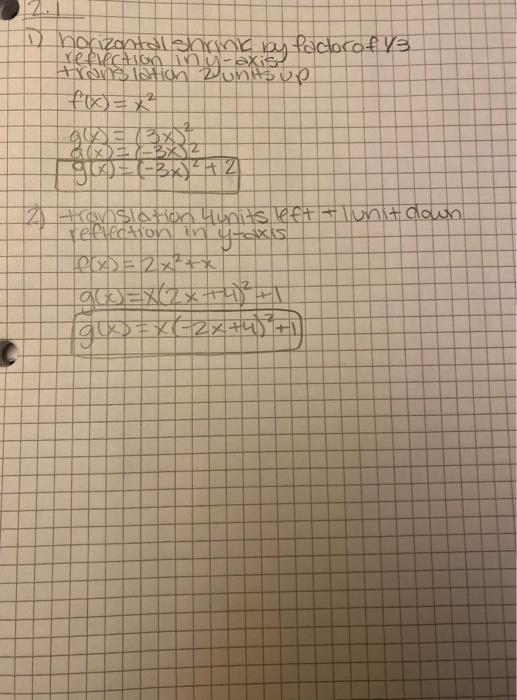 2.1
1) horizontal shrink by factor of 1/3
reflection in y-axis
translation 2 units up
f(x) = x²
g(x) = (3x)²
g(x) = (-3x)²
g(x) = (-3x)² + 2
2) translation 4 units left + 1 unit down
reflection in y-axis
f(x) = 2x² + x
g(x) = x(2x+4)² + 1
g(x) = x(-2x+4)² + 1